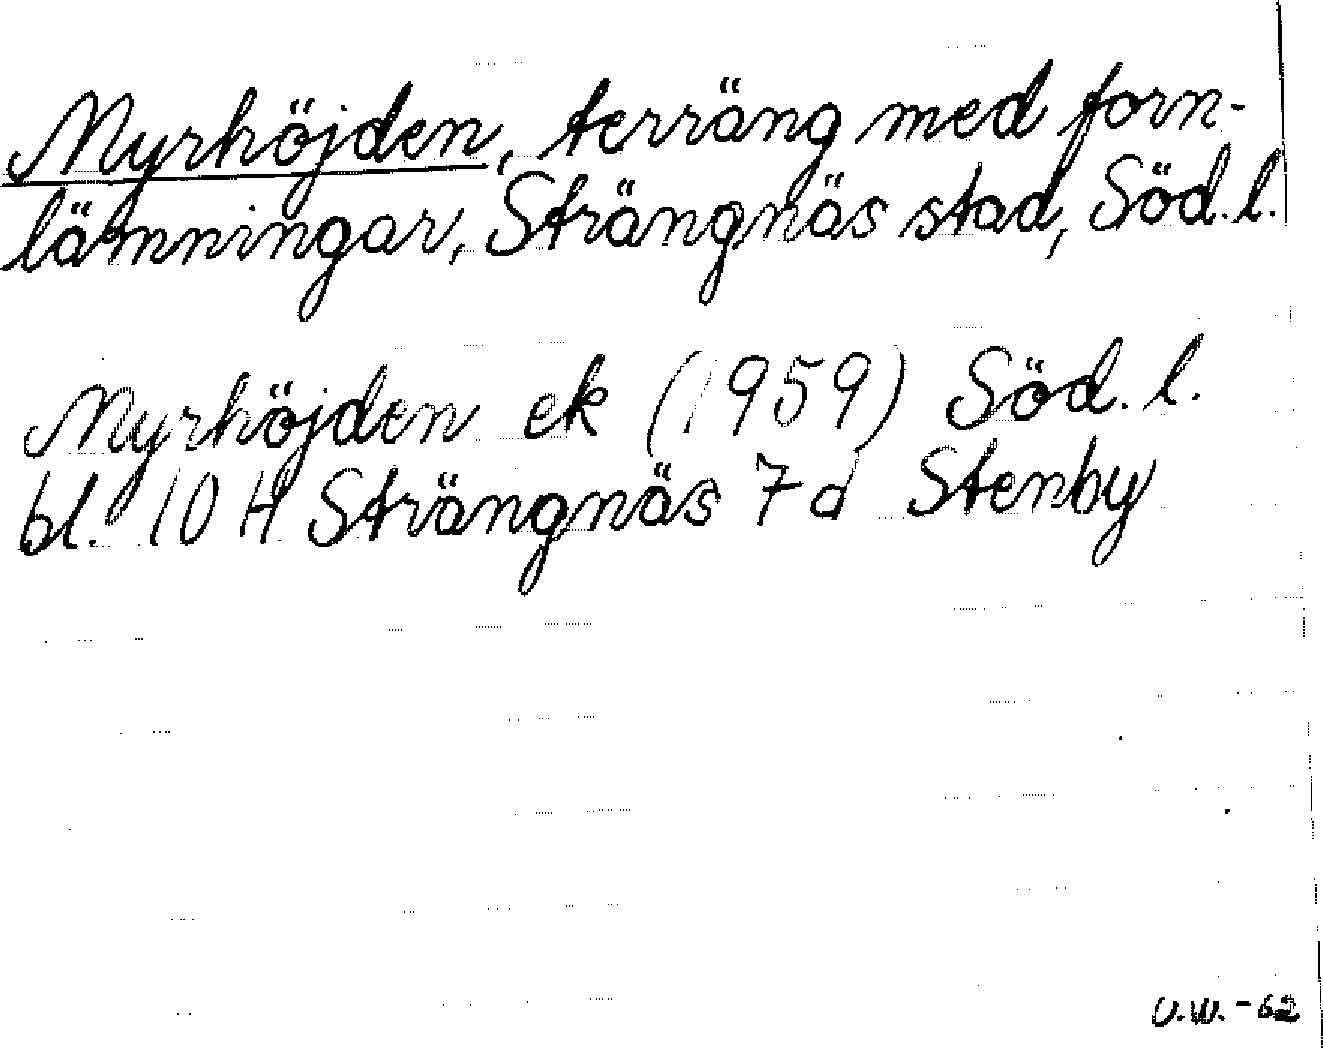 Myrhöjden, terräng med forn-
lämningar, Strängnäs stad, Söd. l.
Myrhöjden ek (1959) Söd. l.
bl. 10 H Strängnäs 7 d Stenby
U.W. - 62